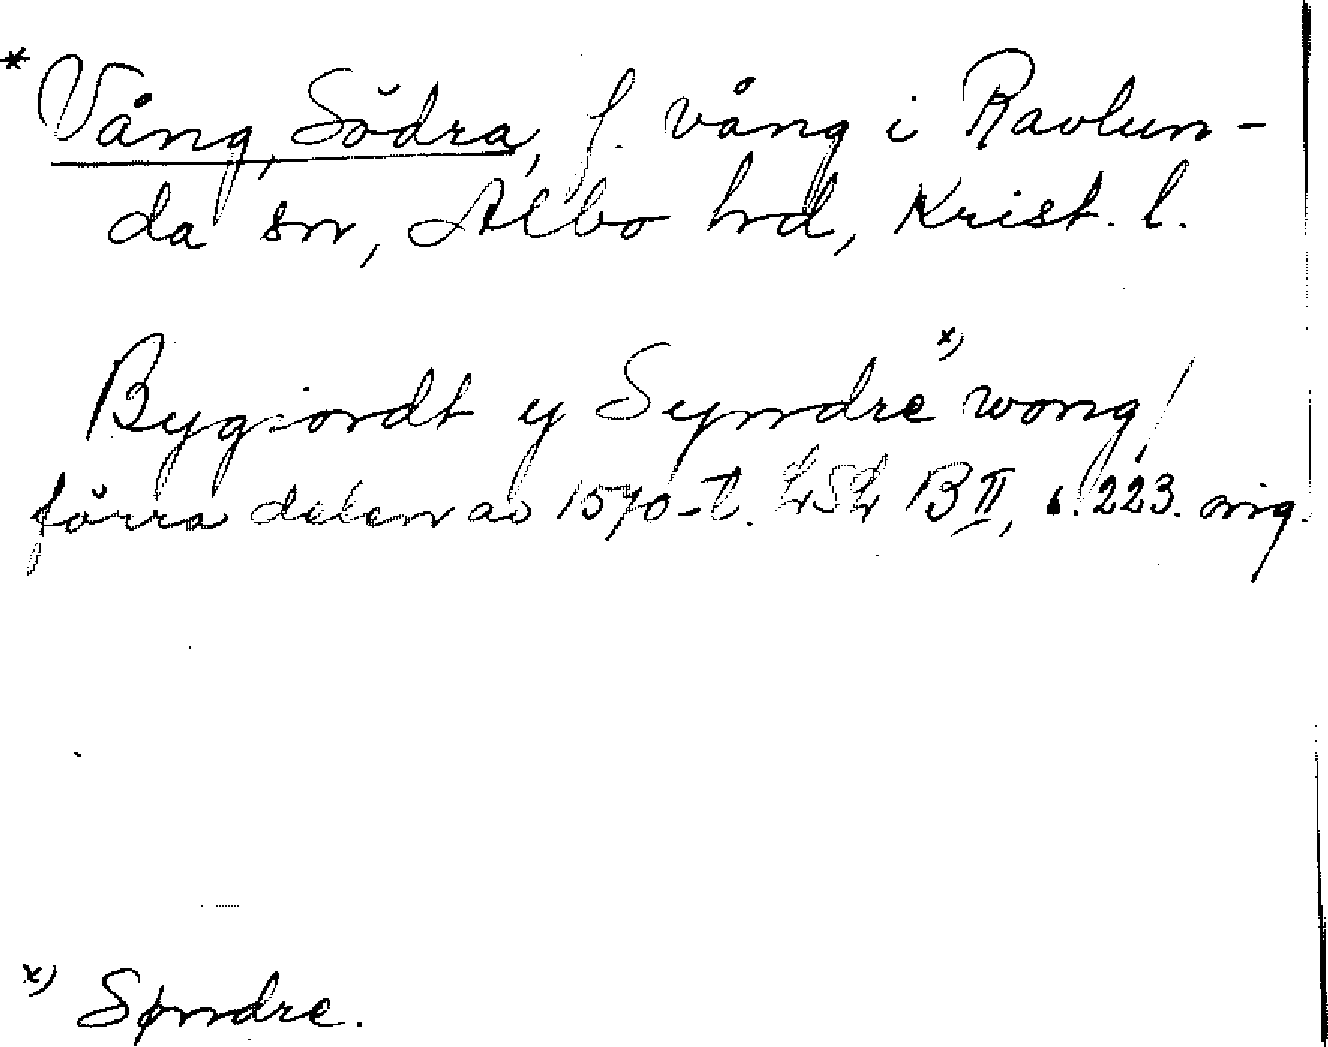 * Vång, Södra, f. vång i Ravlun-
da sn, Albo hd, Krist. l.
Bygiordt y Syndre x) wong/
förra delen av 1570-t. LSL B II, s. 223. orig.
x) Søndre.